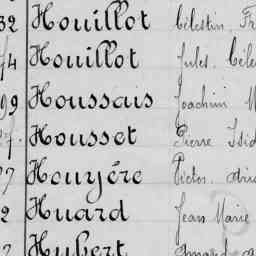 32 Houillot Célestin Fr
74 Houillot Jules Céle
99 Houssais Joachim M
27. Housset Pierre Isid
27 Houyére Victor
2 Huard Jean Marie
2 Hubert Amand